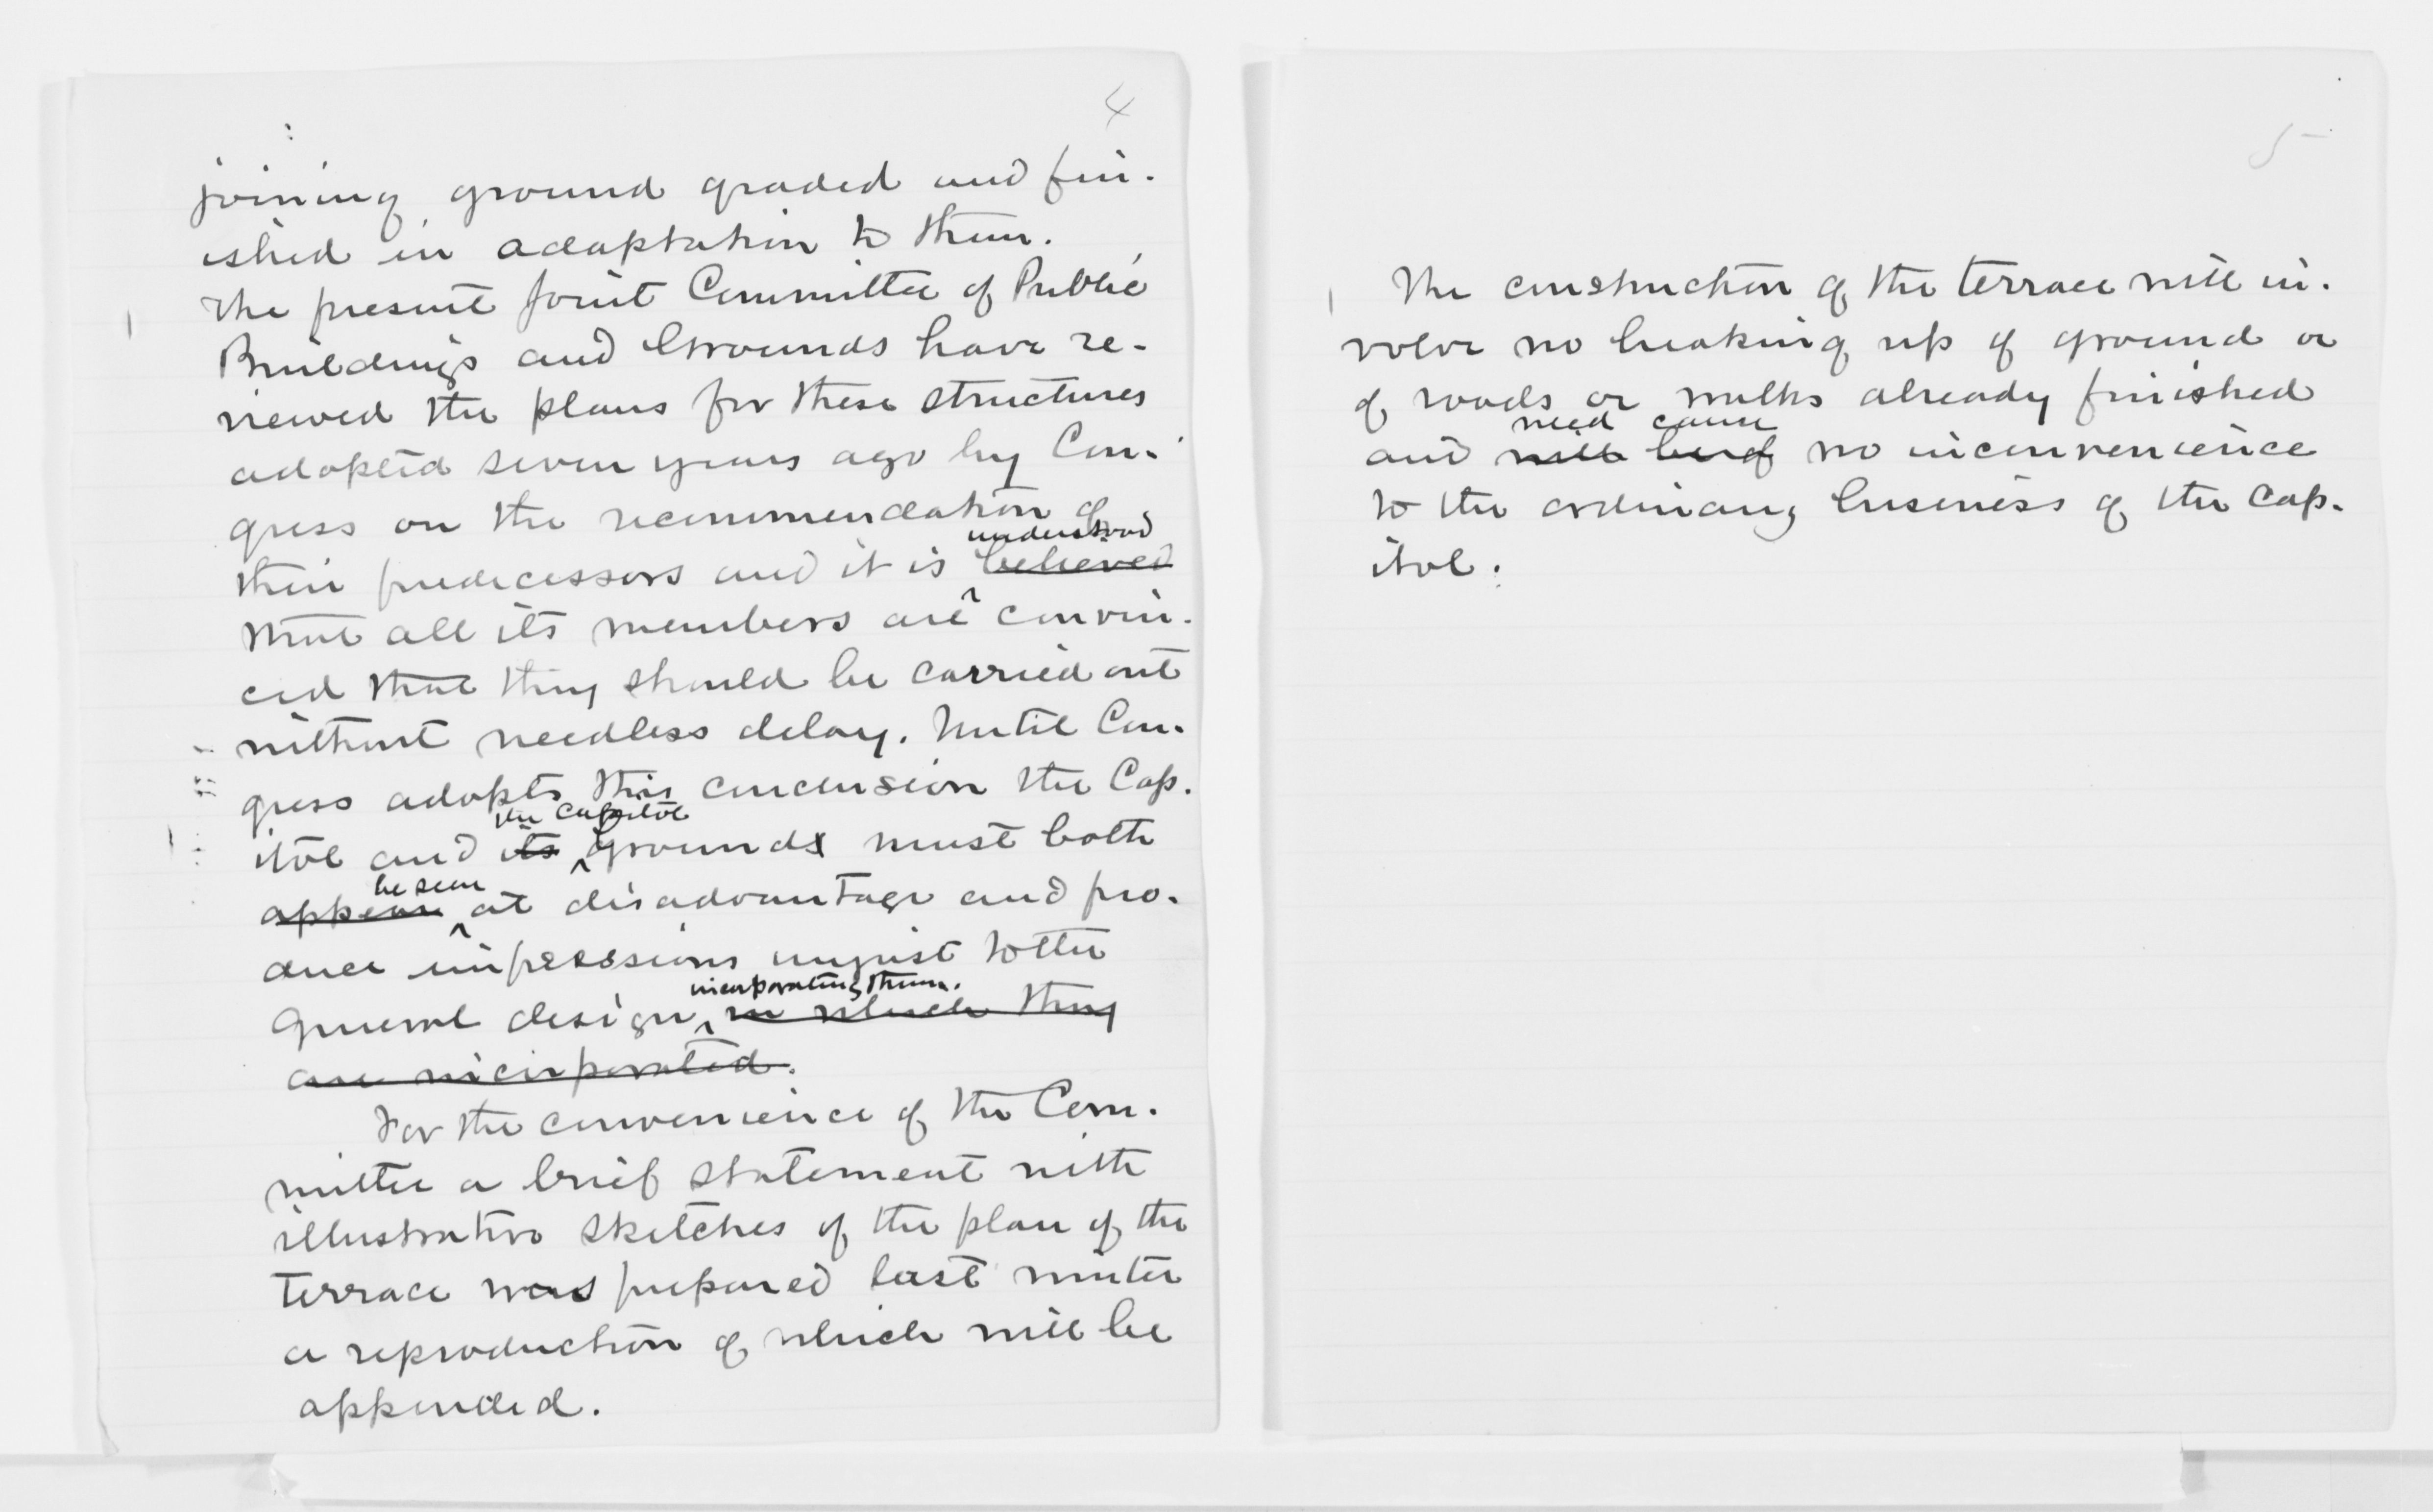 4
joining ground graded and fin-
ished in adaptation to them.
The present Joint Committee of Public
Buildings and Grounds have re-
viewed the plans for these structures
adopted seven years ago by Con-
gress on the recommendation of
understood
their predecessors and it is believed
that all its members are convin-
ced that they should be carried out
without needless delay. Until Con-
gress adopts this conclusion the Cap-
the Capitol
itol and its grounds must both
be seen
appear at disadvantage and pro-
duce impressions unjust to the
incorporating them.
general design, in which they
are incorporated.
For the convenience of the Com-
mittee a brief statement with
illustrative sketches of the plan of the
terrace was prepared last winter
a reproduction of which will be
appended.
5
The construction of the terrace will in-
volve no breaking up of ground or
of roads or walks already finished
need cause
and will be of no inconvenience
to the ordinary business of the Cap-
itol.